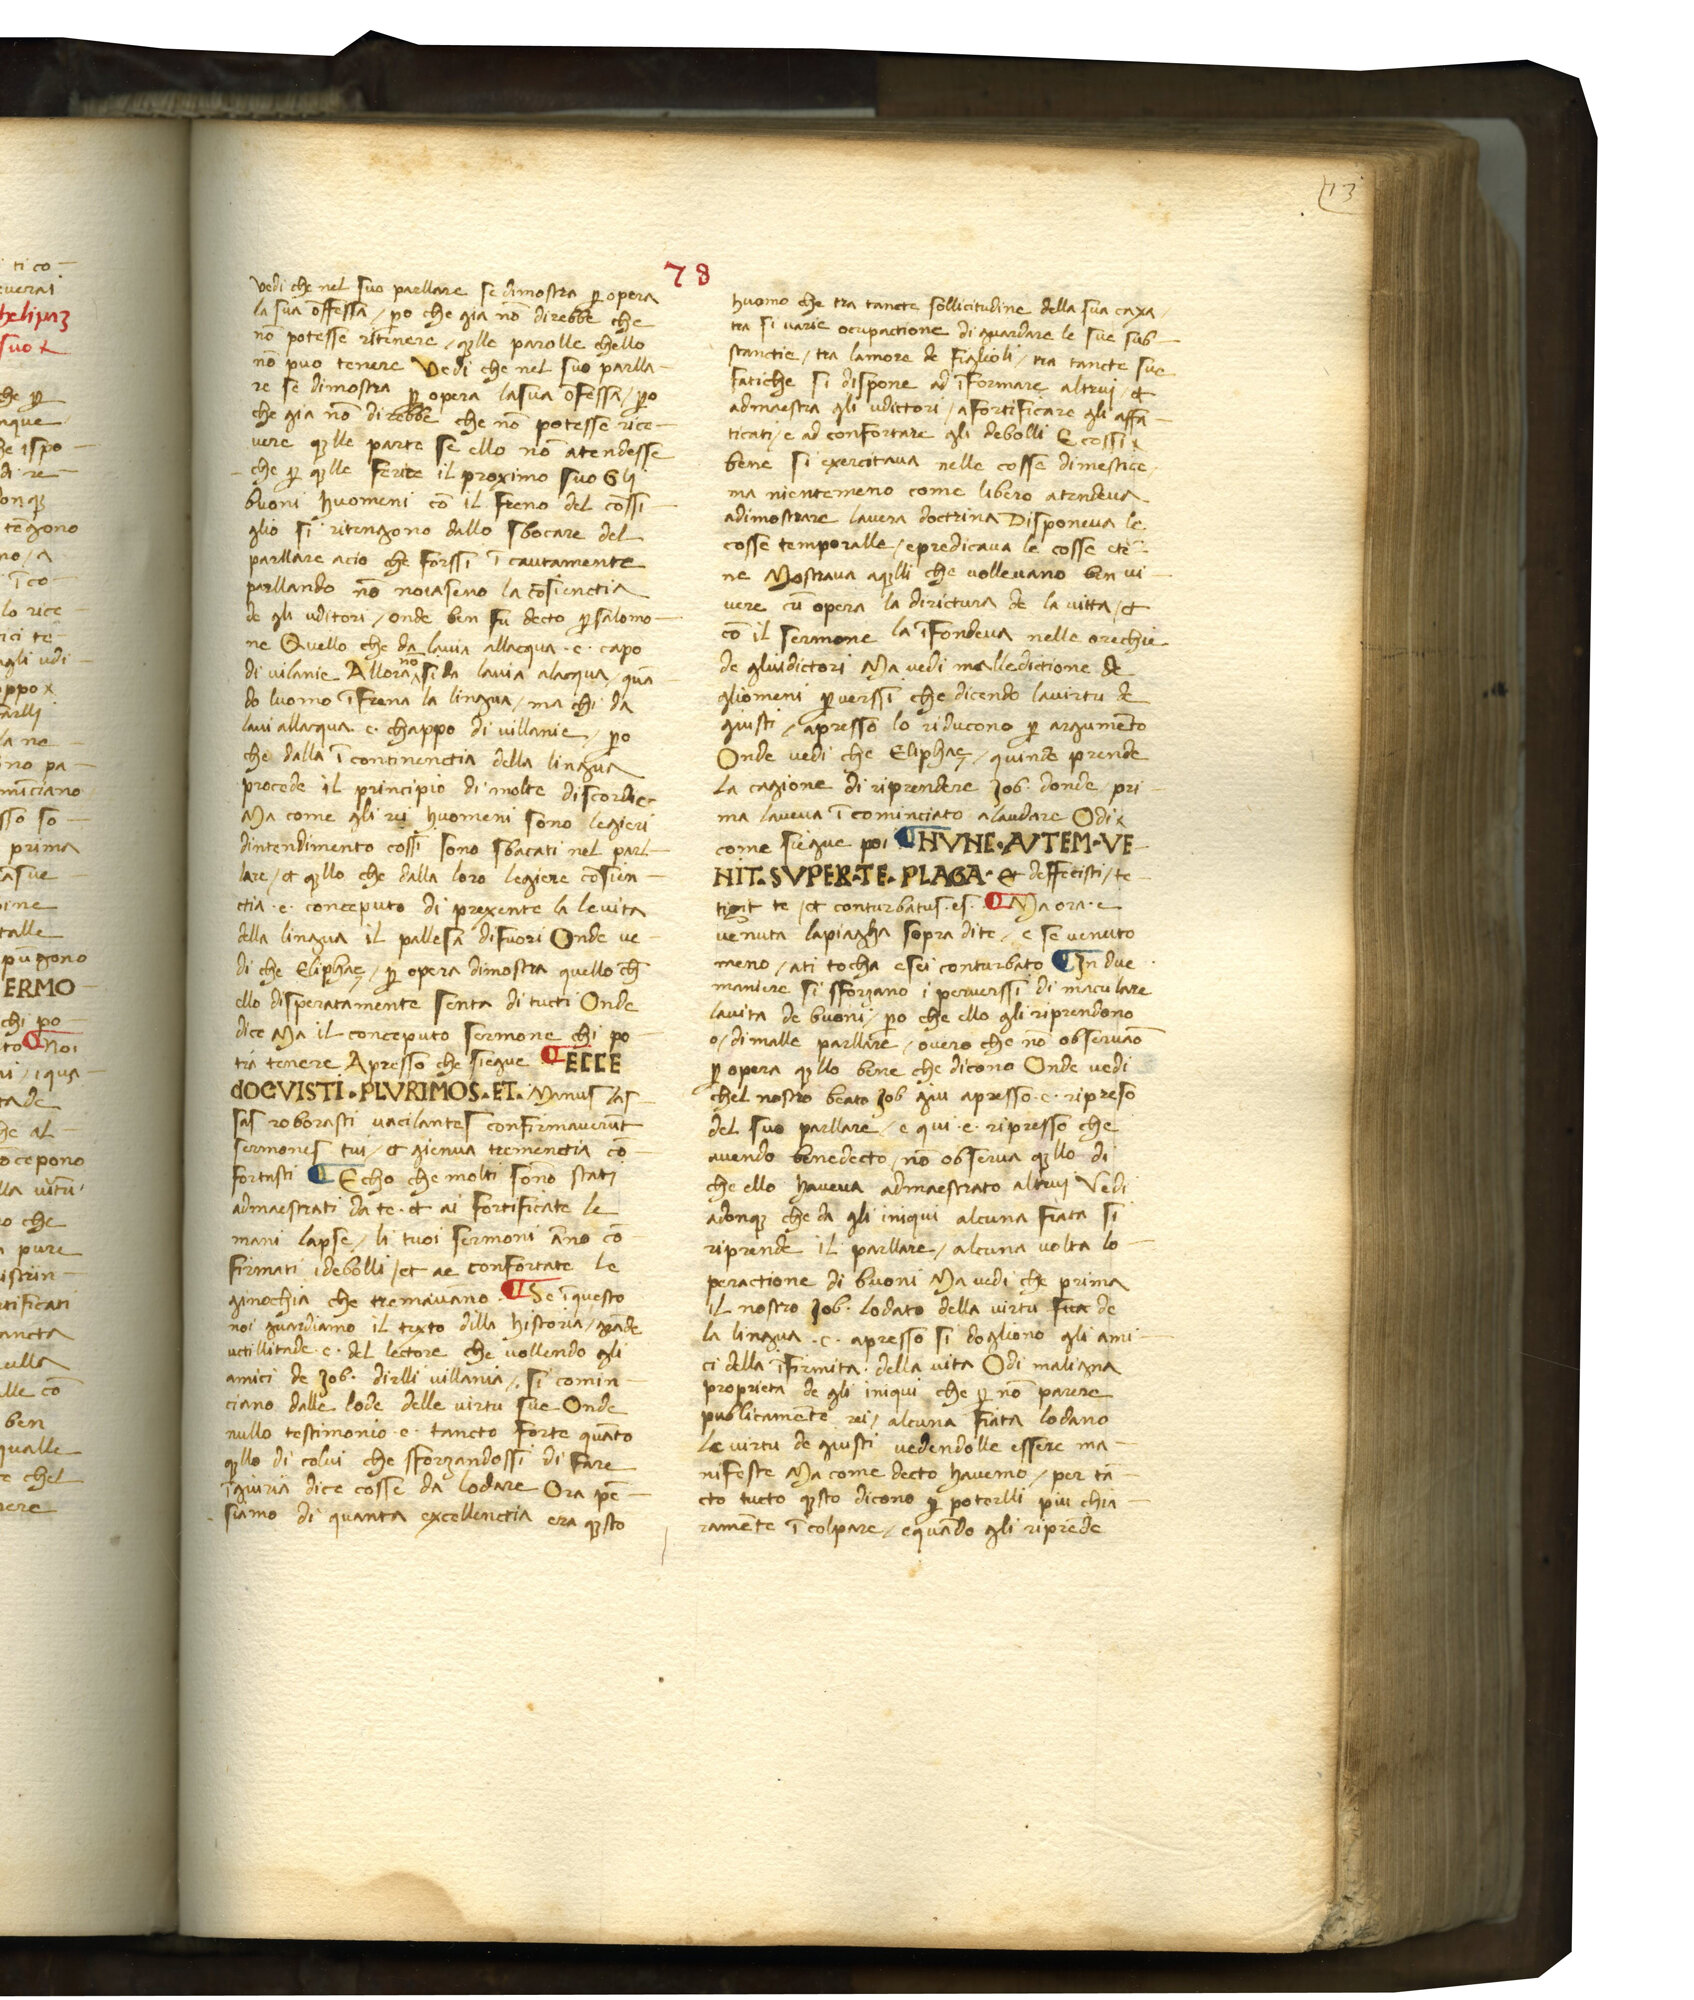 13
78
Vedi che nel suo parllare se dimostra ꝑ opera
la sua offessa / ꝑo che gia nō direbbe che
nō potesse ritinere / qꝫlle parolle chello
nō puo tenere Vedi che nel suo parlla-
re se dimostra ꝑ opera lasua ofessa / ꝑo
che gia nō direbbe che nō potesse rice-
vere qꝫlle parte se ello nō atendesse
che ꝑ qꝫlle ferite il proximo suo Gli
buoni huomeni cō il freno del cossi-
glio si ritengono dallo sbocare del
parllare acio che forssi ī cautamente
parllando nō noiaseno la cōsienctia
de gli uditori / onde ben fu decto ꝑ salomo-
ne Quello che da lauia allacqua · e · capo
di vilanie Allora no si da lauia alacqua / quā
do luomo īfrena la lingua / ma chi da
laui allacqua · e · chappo di villanie / ꝑo
che dalla ī continenctia della lingua
procede il principio di molte discordie
Ma come gli rij huomeni sono legieri
dintendimento cossi sono sbacati nel parl-
lare / et qꝫllo che dalla loro legiere cōsien-
ctia · e · conceputo di prexente la levita
della lingua il pallesa difuori Onde ve-
di che Eliphaꝫ / ꝑ opera dimostra quello cħ
ello disperatamente senta di tucti Onde
dice Ma il conceputo sermone chi po
tra tenere Apresso che siegue ¶ ECCE
dOCVISTI · PLVRIMOS · ET · Manus las-
sas roborasti vacilantes confirmauerūt
sermones tui / et gienua tremenctia cō-
fortasti ¶ Echo che molti sono stati
admaestrati da te · et ai fortificate le
mani lapse / li tuoi sermoni āno cō-
firmati idebolli / et ae confortate le
ginochia che tremavano ¶ Se ī questo
noi guardiamo il texto dilla historia / grāde
uctillitade · e · del lectore che vollendo gli
amici de Job · dirlli villania / si comin-
ciano dalle lode delle virtu sue Onde
nullo testimonio · e · tancto forte quāto
qꝫllo di colui che sforzandossi di fare
īgiuria dice cosse da lodare Ora pē-
siamo di quanta excellenctia era qꝫsto
huomo che tra tancte sollicitudine della sua caxa /
tra si varie ocupactione di guardare le sue sub-
stanctie / tra lamore de figlioli / tra tancte sue
fatiche si dispone ad īformare altrui / et
admaestra gli udittori / afortificare gli affa-
ticati / e ad confortare gli debolli E cossi
bene si exercitava nelle cosse dimestice /
ma nientemeno come libero atendeua
adimostrare lauera doctrina Disponeua le
cosse temporalle / epredicaua le cosse ete-
ne Mostraua aqꝫlli che vollevano ben vi-
vere cū opera la dirictura de la vitta / et
cō il sermone la īfondeua nelle orechie
de gluidictori Ma vedi malledictione de
gliomeni ꝑverssi che dicendo lavirtu de
giusti / apresso lo riducono ꝑ argumento
Onde vedi che Eliphaꝫ / quinde prende
la cagione di riprendere Job · donde pri-
ma laueua ī cominciato alaudare Odi
come siegue poi ¶ HVNE · AVTEM · VE-
NIT · SVPER · TE · PLAGA · et deffecisti / te-
tigit te / et conturbatus · es · ¶ Ma ora · e
venuta lapiagha sopra dite / e se venuto
meno / ati tocha esei conturbato ¶ In due
maniere si sforzano i perverssi di maculare
lavita de buoni / ꝑo che ello gli riprendono
o / di malle parllare / overo che nō observāo
ꝑ opera qꝫllo bene che dicono Onde vedi
chel nostro beato Job giu apresso · e · ripreso
del suo parllare / e qui · e · ripresso che
avendo benedecto / nō observa qꝫllo di
che ello haveua admaestrato altrui Vedi
adonqꝫ che da gli iniqui alcuna fiata si
riprende il parllare / alcuna volta lo-
peractione di buoni Ma vedi che prima
il nostro Job · lodato della virtu de
la lingua · e · apresso si dogliono gli ami-
ci della īfirmita della vita Odi maligna
proprieta de gli iniqui che ꝑ nō parere
publicamente rei / alcuna fiata lodano
le virtu de giusti vedendolle essere ma-
nifeste Ma come decto havemo / per tā-
cto tucto qꝫsto dicono ꝑ poterlli piu chia-
ramente ī colpare / equando gli riprēde